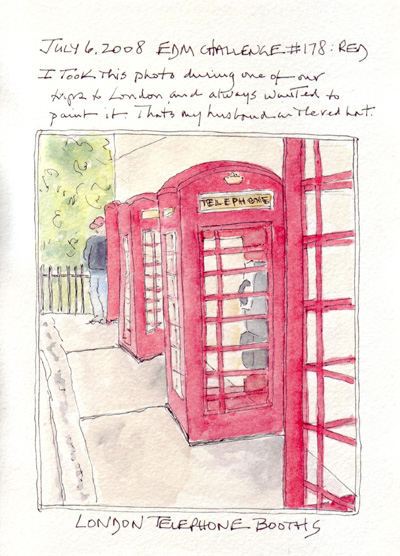 JULY 6, 2008 EDM CHALLENGE #178: RED
I Took this photo during one of our
trips to London and always wanted to
paint it. Thats my husband in the red hat.
TELEPHONE
LONDON TELEPHONE BOOTHS